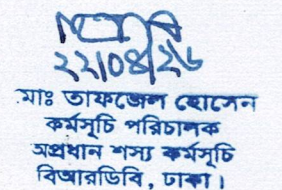 ২২/০৪/২৬
মোঃ তাফজেল হোসেন
কর্মসূচি পরিচালক
অপ্রধান শস্য কর্মসূচি
বিআরডিবি, ঢাকা।